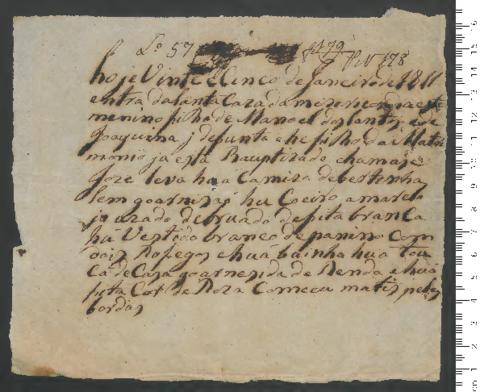 Lº 57 fl 179 Nº 178
hoje Vinte e Sinco de Janeiro de 1811
entra da Santa Caza da mizericordia este
menino filho de Manoel dos Santos e de
Joaquina defunta e he filho da Matri
monio ja está Bauptizado chamaçe
Joze leva hua Camiza de bertanha
Sem goarnisaõ hu Coeiro amarelo
ja uzado debruado de fita branca
hu Vestido branco de panino Com
dois Rofegos e huá bainha huá tou
ca de Caça goarnesida de Renda e huá
fita Cor de Roza Com seu matis pelas
bordas